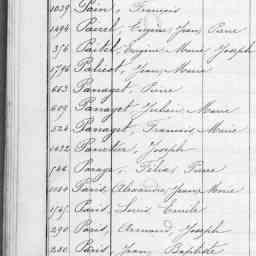 1039 Pain, François
1494 Pairel, Eugène Jean Pierre
376 Paitel, Eugène Marie Joseph
1796 Paliot, Jean Marie
663 Panaget, Pierre
609 Panaget, Julien Marie
524 Panaget, Francis Marie
1022 Panetier, Joseph
746 Parage, Félix Pierre
1180 Paris, Alexandre Jean Marie
1545 Paris, Louis Emile
290 Paris, Armand Joseph
250 Paris, Jean Baptiste